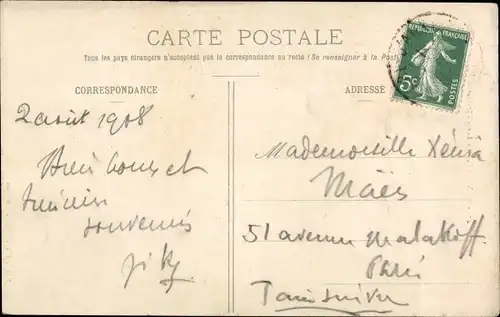 CARTE POSTALE
Tous les pays étrangers n'acceptent pas la correspondance au recto (Se renseigner à la Post
CORRESPONDANCE
ADRESSE
REPUBLIQUE FRANÇAISE
5c
POSTES
2 août 1908
bons et
souvenirs
Mademoiselle Xénia
Maës
51 avenue Malakoff
Paris